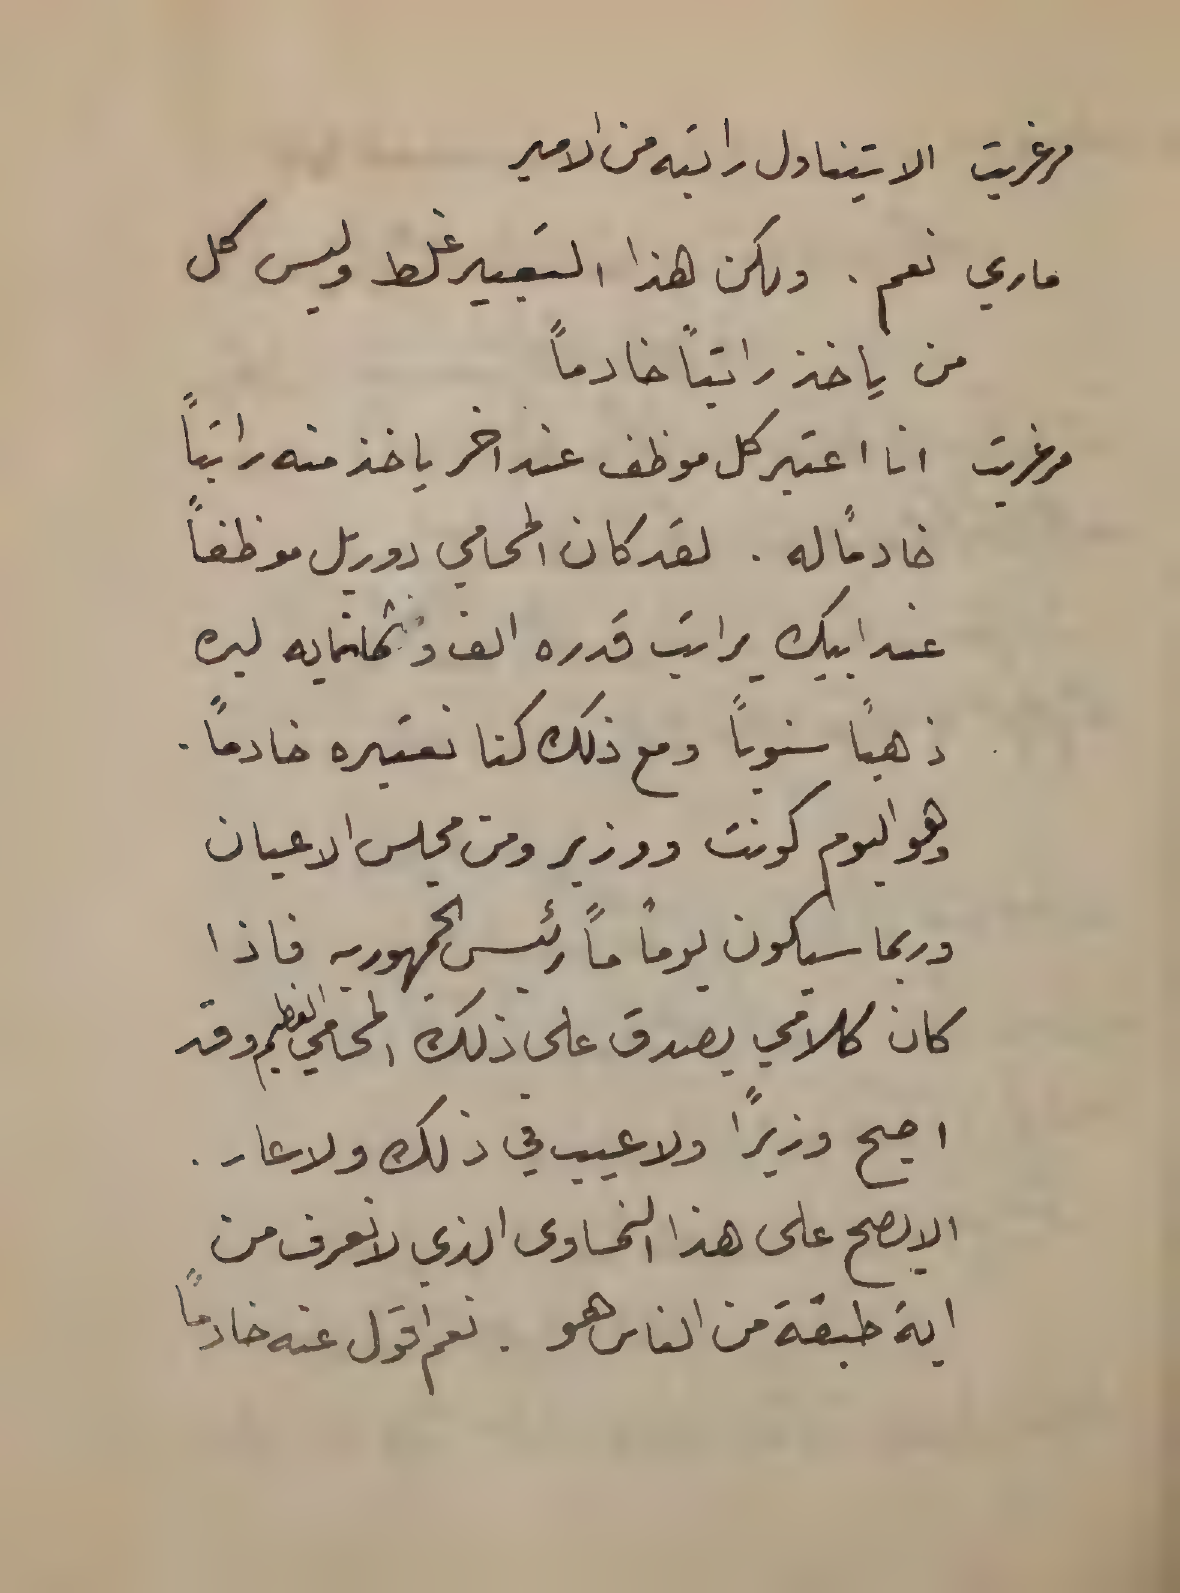 مرغريت الا يتناول راتبه من الامير
ماري نعم . ولكن هذا التعبير غلط وليس كل
من ياخذ راتباً خادماً
مرغريت انا اعتبر كل موظف عند اخر ياخذ منه راتباً
خادماً له . لقد كان المحامي دوريل موظفاً
عند ابيك براتب قدره الف وثمانمايه ليره
ذهباً سنوياً ومع ذلك كنا نعتبره خادماً .
وهو اليوم كونت ووزير ومن مجلس الاعيان
وربما سيكون يوماً ماً رئيس الجمهوريه فاذا
كان كلامي يصدق على ذلك المحامي العظيم وقد
اصبح وزيراً ولا عيب في ذلك ولا عار .
الا يصح على هذا النمساوى الذي لا نعرف من
اية طبقة من الناس هو . نعم اقول عنه خادماً